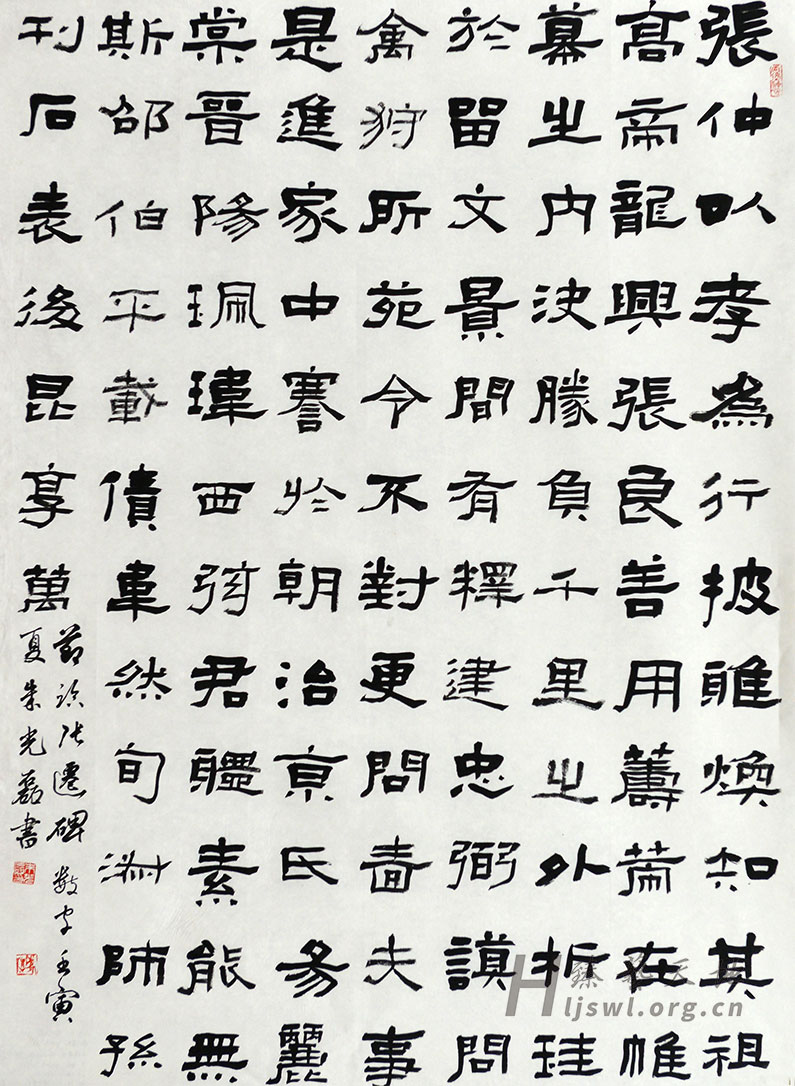 張仲以孝為行披雎煥知其祖
高帝龍興張良善用籌萹在帷
幕之内決勝負千里之外析珪
於留文景間有釋建忠弼謨問
禽狩所苑令不對更問嗇夫事
是進家中謇於朝治京氏易麗
棠晉陽珮瑋西弦君體素能無
斯邵伯平載債車然旬師孫
刊石表後昆享萬
節臨張遷碑數字壬寅
夏朱光磊書
Hljswl.org.cn